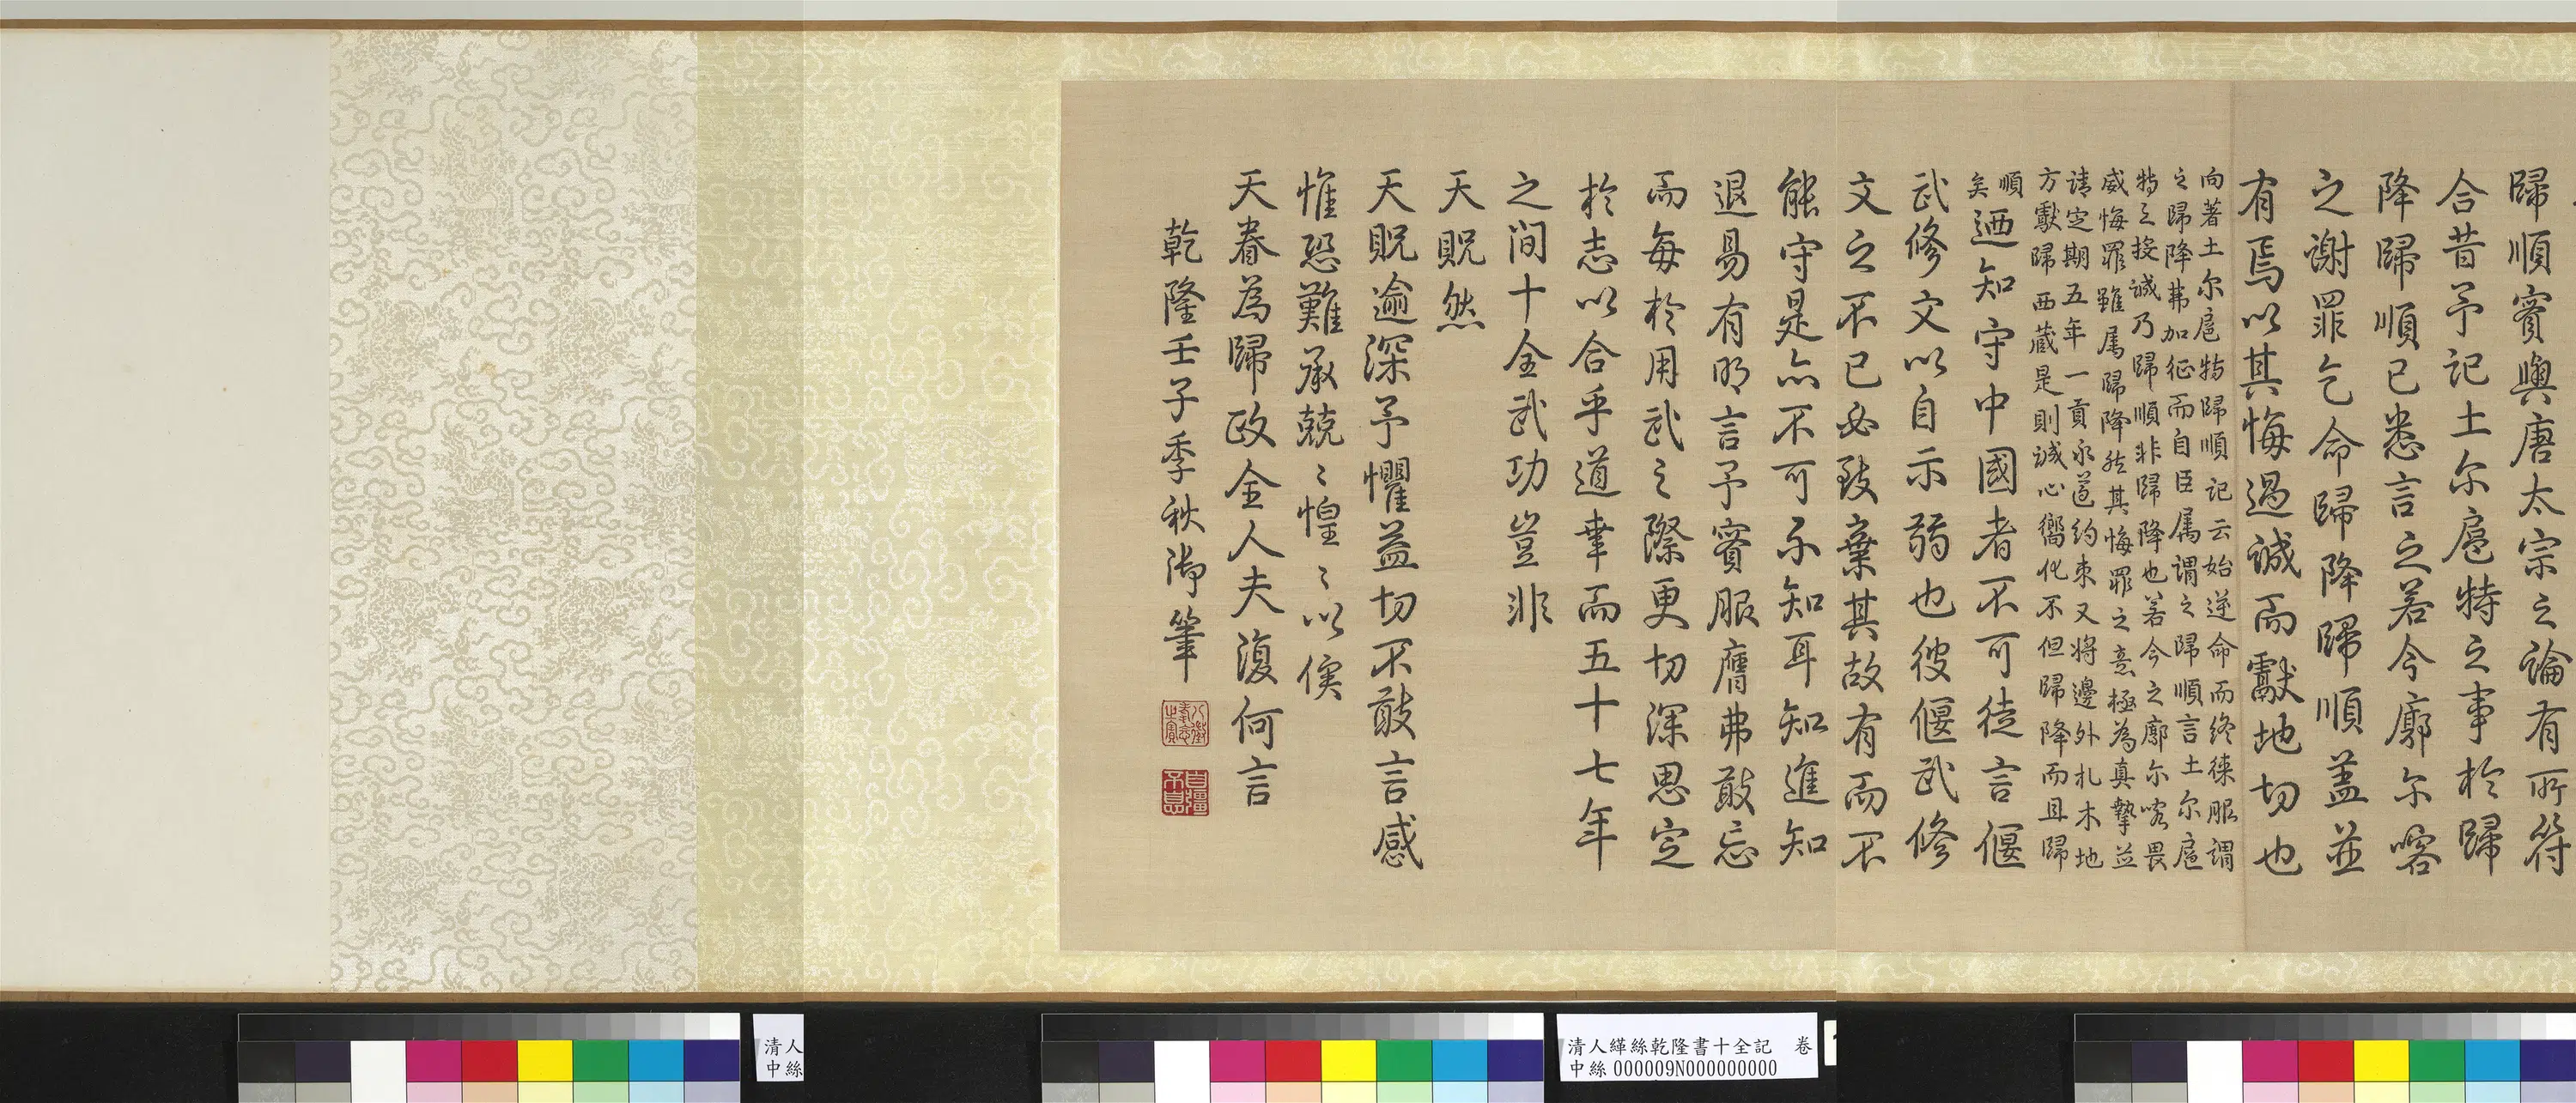 歸順實與唐太宗之論有所符
合昔予記土尔扈特之事於歸
降歸順已悉言之若今廓尔喀
之謝罪乞命歸降歸順蓋並
有焉以其悔過誠而獻地切也
向著土尔扈特歸順記云始逆命而終徠服謂
之歸降弗加征而自臣属謂之歸順言土尔扈
特之投誠乃歸順非歸降也若今之廓尔喀畏
威悔罪雖属歸降然其悔罪之意極為真摯並
请定期五年一貢永遵約束又将邊外札木地
方獻歸西藏是則誠心嚮化不但歸降而且歸
順
矣
迺知守中國者不可徒言偃
武修文以自示弱也彼偃武修
文之不已必致棄其故有而不
能守是亦不可不知耳知進知
退易有明言予實服膺弗敢忘
而每於用武之際更切深思定
於志以合乎道幸而五十七年
之間十全武功豈非
天貺然
天貺逾深予懼益切不敢言感
惟恐難承兢〻惶〻以俟
天眷為歸政全人夫復何言
乾隆壬子季秋御筆
八徵耄念之寶
自彊不息
清人
中絲
清人緙絲乾隆書十全記 卷
中絲 000009N000000000